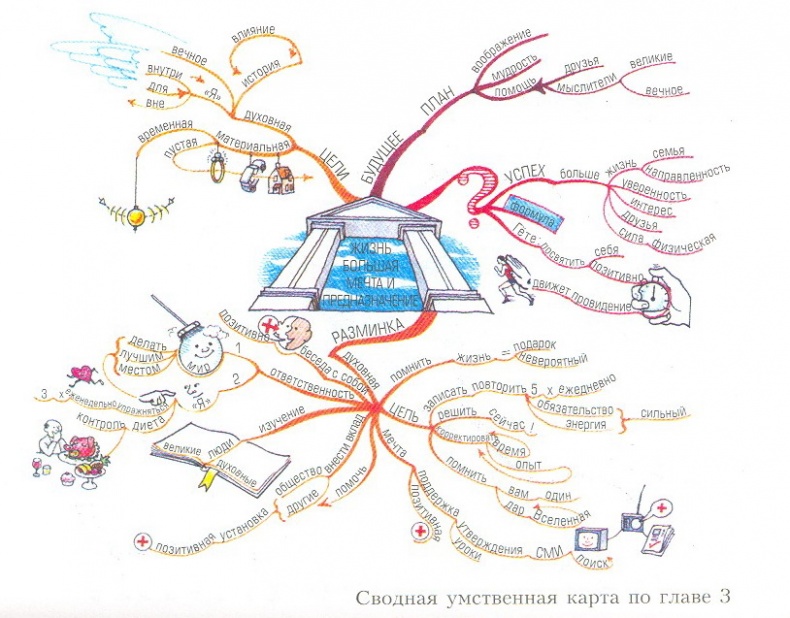 ЖИЗНЬ
БОЛЬШАЯ
МЕЧТА И
ПРЕДНАЗНАЧЕНИЕ
ЦЕЛИ
духовная
«Я»
вечное
внутри
для
вне
история
влияние
материальная
временная
пустая
БУДУЩЕЕ
ПЛАН
воображение
мудрость
помощь
друзья
мыслители
великие
вечное
?
УСПЕХ
больше
жизнь
семья
направленность
уверенность
интерес
друзья
сила физическая
формула!
Гёте
посвятить
себя
позитивно
движет провидение
РАЗМИНКА
духовная
помнить
жизнь = подарок
невероятный
ЦЕЛЬ
записать повторить 5 х ежедневно
обязательство
энергия
сильный
решить
сейчас!
корректировать
время
опыт
помнить
вам один
дар Вселенная
мечта
поддержка
позитивная
утверждения
уроки
СМИ
поиск
внести вклад
помочь
общество
другие
позитивная установка
изучение
великие люди
духовные
ответственность
1
мир
делать
лучшим
местом
2
«Я»
3 х еженедельно упражняться
контроль диета
беседа с собой
позитивная
Сводная умственная карта по главе 3